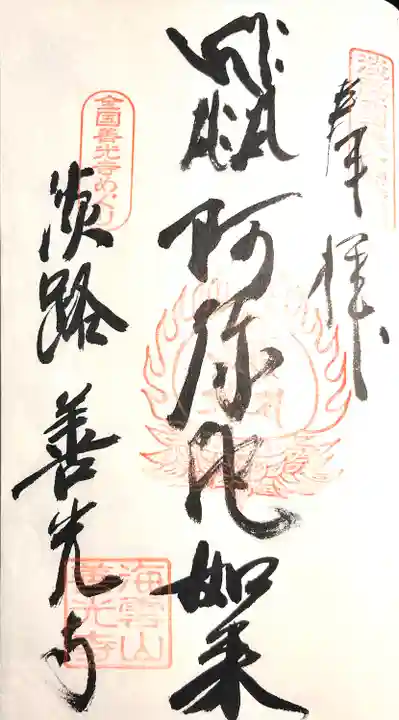 奉拝
阿弥陀如来
全国善光寺めぐり
淡路 善光寺
海雲山
善光寺